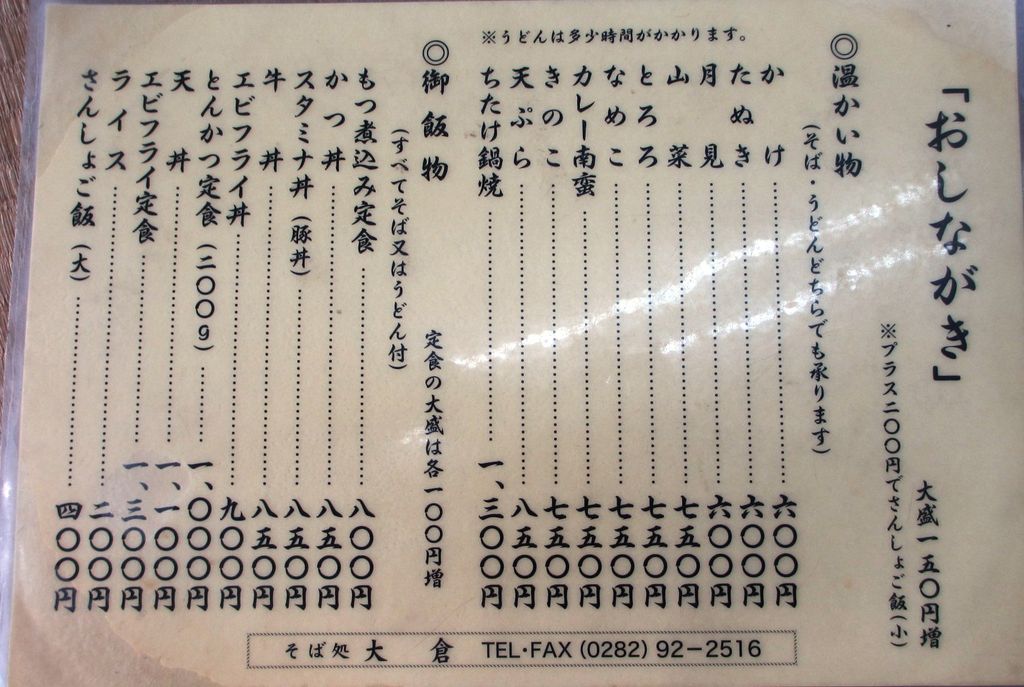 「おしながき」
大盛一五〇円増
※プラス二〇〇円でさんしょご飯(小)
◎温かい物
(そば・うどんどちらでも承ります)
かけ…………六〇〇円
たぬき…………六〇〇円
月見…………六〇〇円
山菜…………七五〇円
とろろ…………七五〇円
なめこ…………七五〇円
カレー南蛮…………七五〇円
きのこ…………七五〇円
天ぷら…………八五〇円
ちたけ鍋焼…………一、三〇〇円
※うどんは多少時間がかかります。
◎御飯物
定食の大盛は各一〇〇円増
(すべてそば又はうどん付)
もつ煮込み定食…………八〇〇円
かつ丼…………八五〇円
スタミナ丼(豚丼)…………八五〇円
牛丼…………八五〇円
エビフライ丼…………九〇〇円
とんかつ定食(二〇〇g)…………一、〇〇〇円
天丼…………一、一〇〇円
エビフライ定食…………一、三〇〇円
ライス…………二〇〇円
さんしょご飯(大)…………四〇〇円
そば処 大倉 TEL・FAX (0282) 92−2516